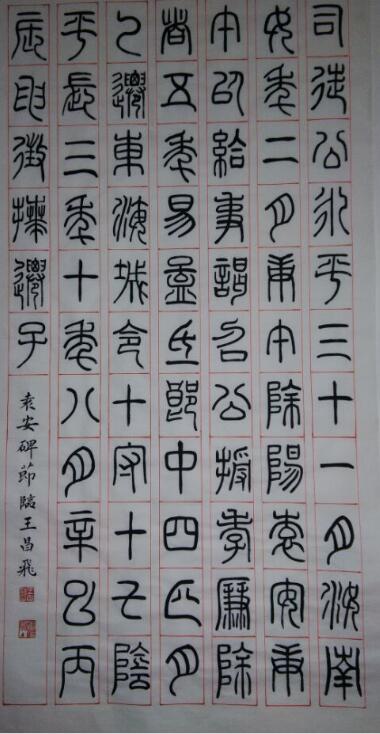 司徒公永平三十一月汝南
女年二月庚午除陽袁安庚
午以給事謁召公授孝廉除
者五年易孟氏郎中四月
乙遷東海城令十守十七陰
平長三年十年八月辛巳丙
辰申徵拜遷子
袁安碑節臨王昌飛